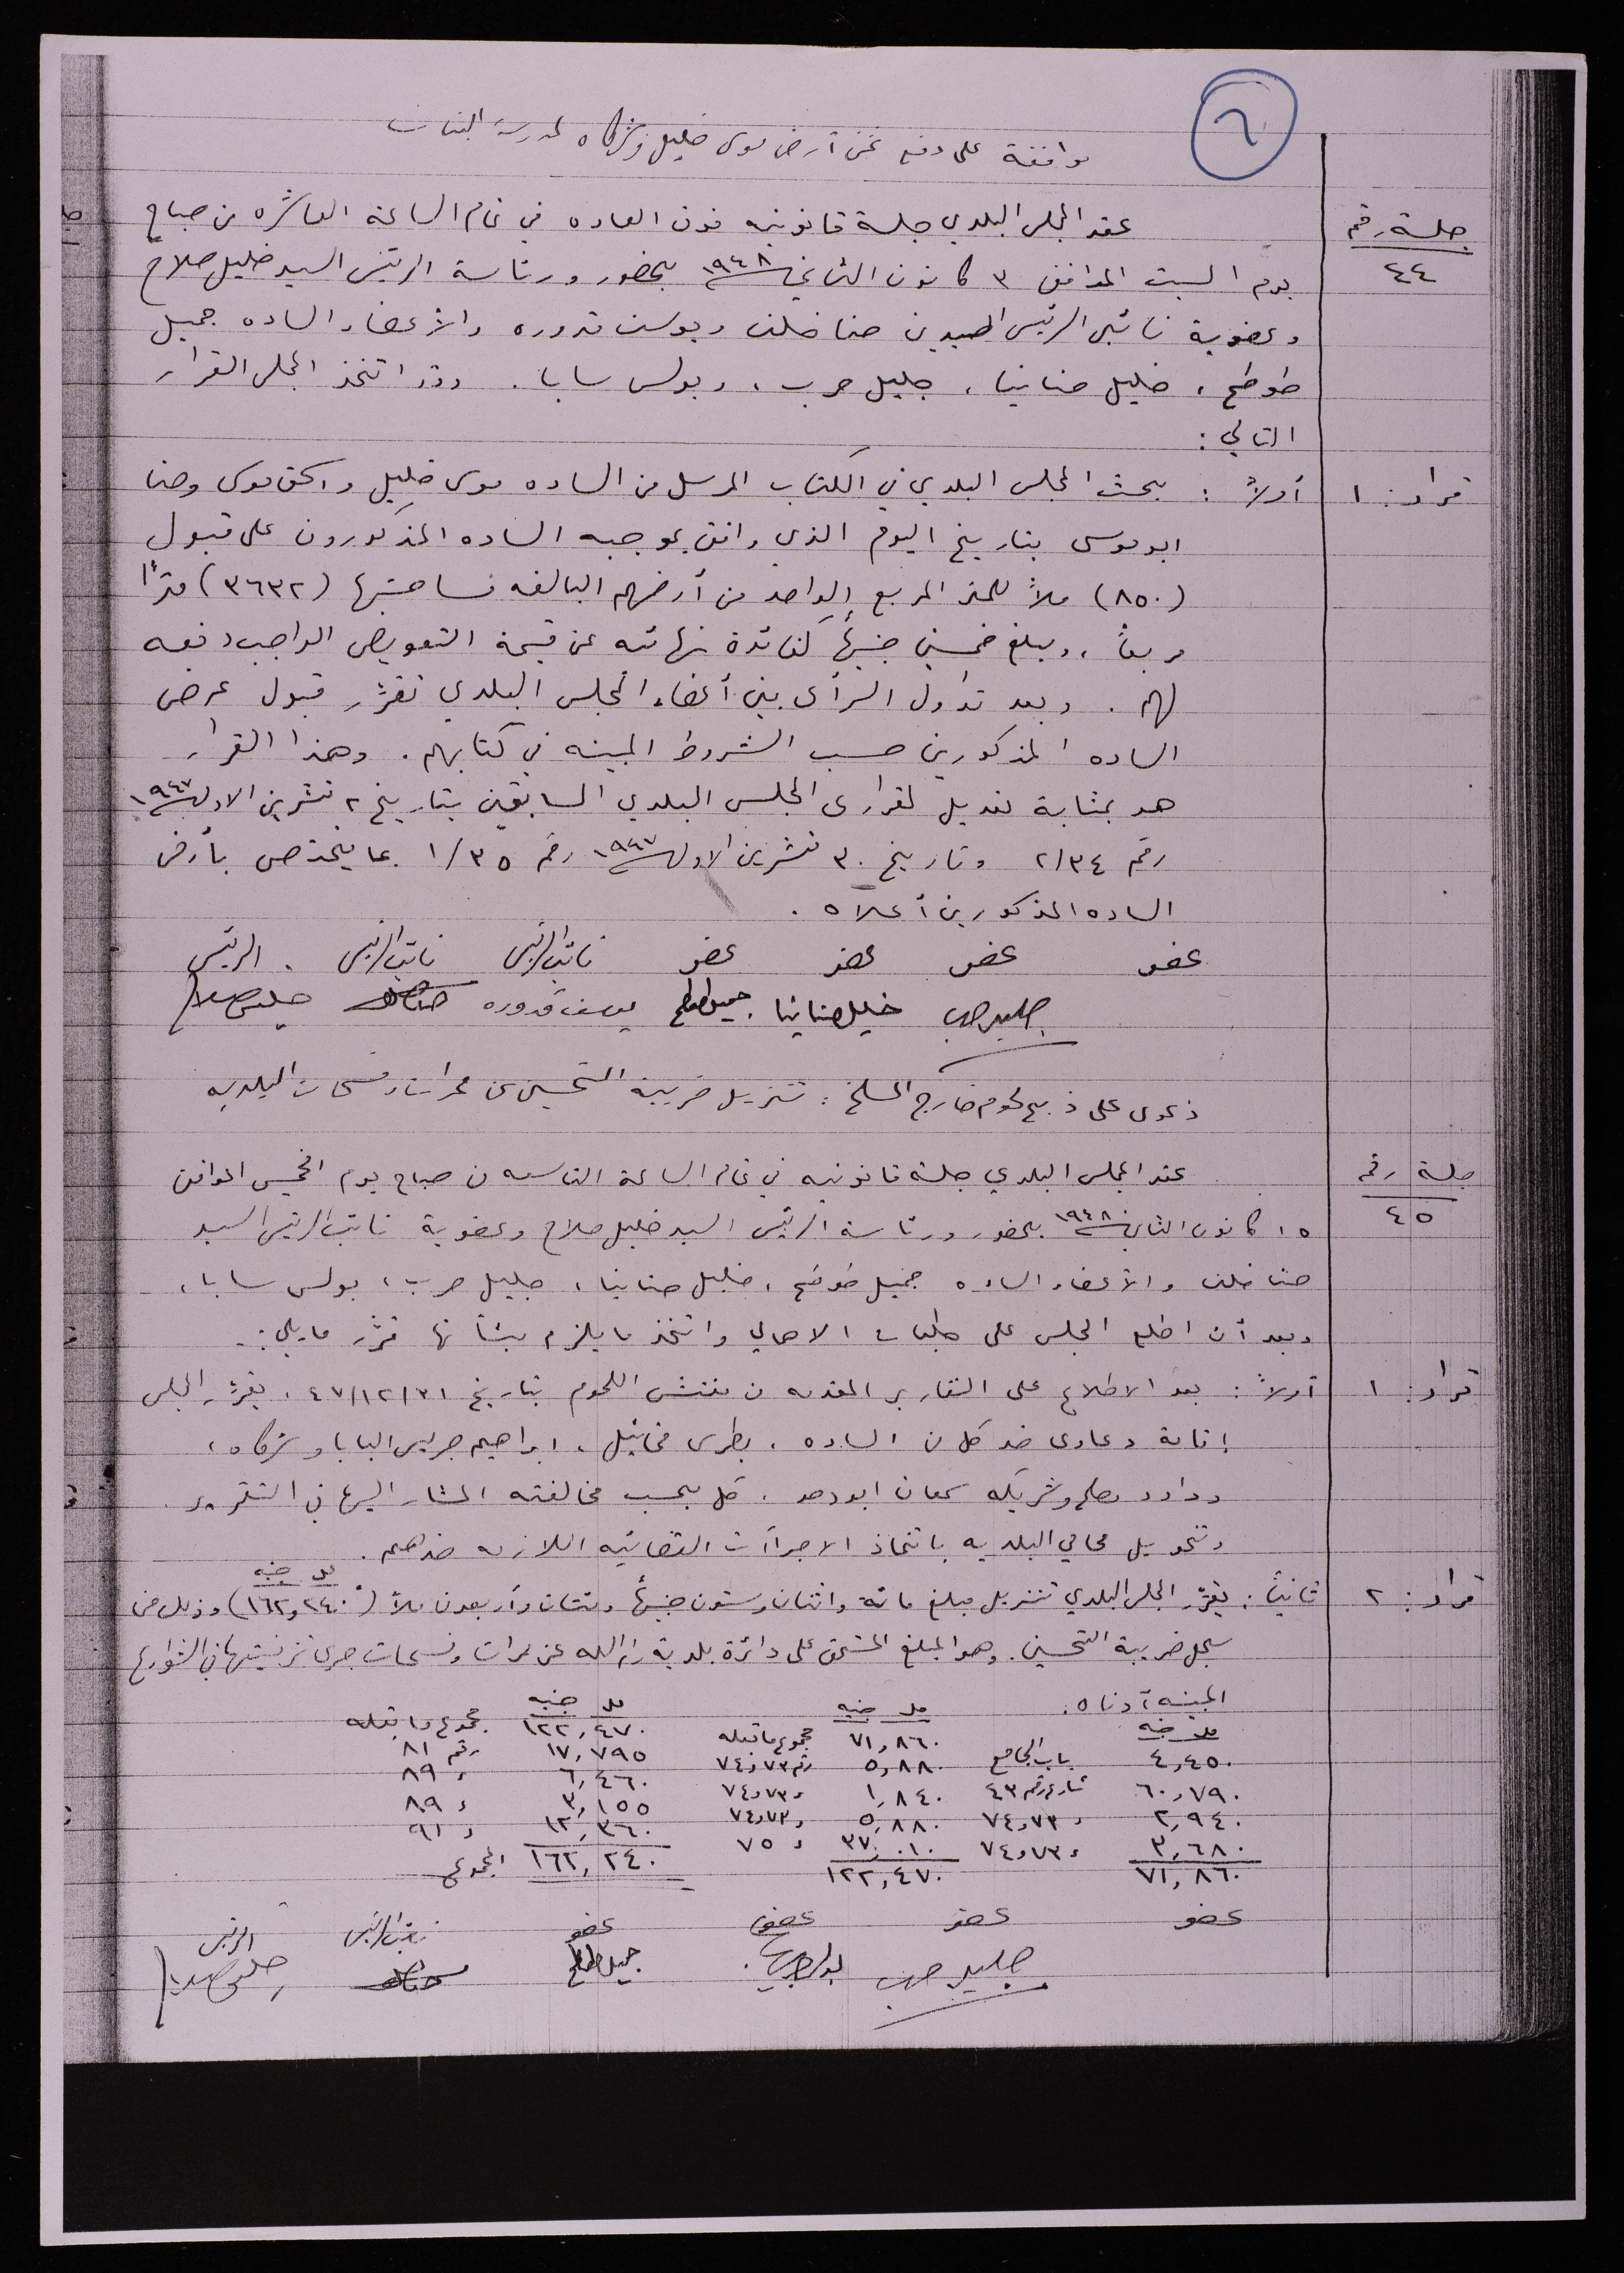 ٦
موافقة على دفع ثمن أرض موسى خليل وشركاه لمدرسة البنات
جلسة رقم
٤٤
عقد المجلس البلدي جلسة قانونيه فوق العاده في تمام الساعة العاشره من صباح
يوم السبت الموافق ٣ كانون الثاني سنة ١٩٤٨ بحضور ورئاسة الرئيس السيد خليل صلاح
وعضوية نائبي الرئيس السيدين حنا خلف ويوسف قدوره والأعضاء الساده جميل
طوطح، خليل حنانيا، جليل حرب، وبولس سابا. وقد اتخذ المجلس القرار
التالي:
قرار: ١ أولاً: بحث المجلس البلدي في الكتاب المرسل من الساده موسى خليل واسحق موسى وحنا
ابو موسى بتاريخ اليوم الذي وافق بموجبه الساده المذكورون على قبول
(٨٥٠) ملاً للمتر المربع الواحد من أرضهم البالغه مساحتها (٣٦٣٢) متراً
مربعاً، ومبلغ خمسين جنيهاً كفائدة نهائيه عن قيمة التعويض الواجب دفعه
لهم. وبعد تداول الرأى بين أعضاء المجلس البلدي تقرّر قبول عرض
الساده المذكورين حسب الشروط المبينه في كتابهم. وهذا القرار
هو بمثابة تعديل لقرارى المجلس البلدي السابقين بتاريخ ٢ تشرين الاول سنة ١٩٤٧
رقم ٢/٣٤ وتاريخ ٣٠ تشرين الاول سنة ١٩٤٧ رقم ١/٣٥ بما يختص بأرض
الساده المذكورين أعلاه.
عضو عضو عضو عضو نائب الرئيس نائب الرئيس الرئيس
جليل حرب خليل حنانيا جميل طوطح يوسف قدوره حنا خلف خليل صلاح
دعوى على ذبح لحوم خارج المسلخ: تنزيل ضريبة التحسين عن ممرات وفسحات البلديه
جلسة رقم
٤٥
عقد المجلس البلدي جلسة قانونيه في تمام الساعة التاسعه من صباح يوم الخميس الموافق
١٥ كانون الثاني سنة ١٩٤٨ بحضور ورئاسة الرئيس السيد خليل صلاح وعضوية نائب الرئيس السيد
حنا خلف والأعضاء الساده جميل طوطح، خليل حنانيا، جليل حرب، بولس سابا،
وبعد أن اطلع المجلس على طلبات الاهالي واتخذ ما يلزم بشأنها قرّر ما يلي:-
قرار: ١ أولاً: بعد الاطلاع على التقارير المقدمه من مفتش اللحوم بتاريخ ٤٧/١٢/٣١، يقرّر المجلس
إقامة دعاوى ضد كل من الساده، بطرس مخائيل، ابراهيم جريس البابا وشركاه،
وداود مصلح وشريكه سمعان ابو دحو. كل بحسب مخالفته المشار اليها في التقرير.
وتحويل محامي البلديه باتخاذ الاجراآت القضائيه اللازمه ضدهم.
قرار: ٢ ثانياً: يقرّر المجلس البلدي تنزيل مبلغ مائة واثنان وستون جنيهاً ومئتان وأربعون ملاً (مل ٢٤٠ و جنيه ١٦٢) وذلك من
سجل ضريبة التحسين. وهو المبلغ المستحق على دائرة بلدية رام الله عن ممرات وفسحات جرى تزفيتها في الشوارع
المبينه أدناه:
مل جنيه مل جنيه مل جنيه
٤,٤٥٠ باب الجامع ٧١,٨٦٠ مجموع ما قبله ١٢٢,٤٧٠ مجموع ما قبله
٦٠,٧٩٠ شارع رقم ٤٣ ٥,٨٨٠ رقم ٧٣ و ٧٤ ١٧,٧٩٥ رقم ٨١
٢,٩٤٠ " ٧٣ و ٧٤ ١,٨٤٠ " ٧٣ و ٧٤ ٦,٤٦٠ " ٨٩
٣,٦٨٠ " ٧٣ و ٧٤ ٥,٨٨٠ " ٧٣ و ٧٤ ٣,١٥٥ " ٨٩
٧١,٨٦٠ ٣٧,٠١٠ " ٧٥ ١٢,٣٦٠ " ٩١
١٢٢,٤٧٠ ١٦٢,٢٤٠ المجموع
عضو عضو عضو عضو نائب الرئيس الرئيس
جليل حرب جميل طوطح حنا خلف خليل صلاح